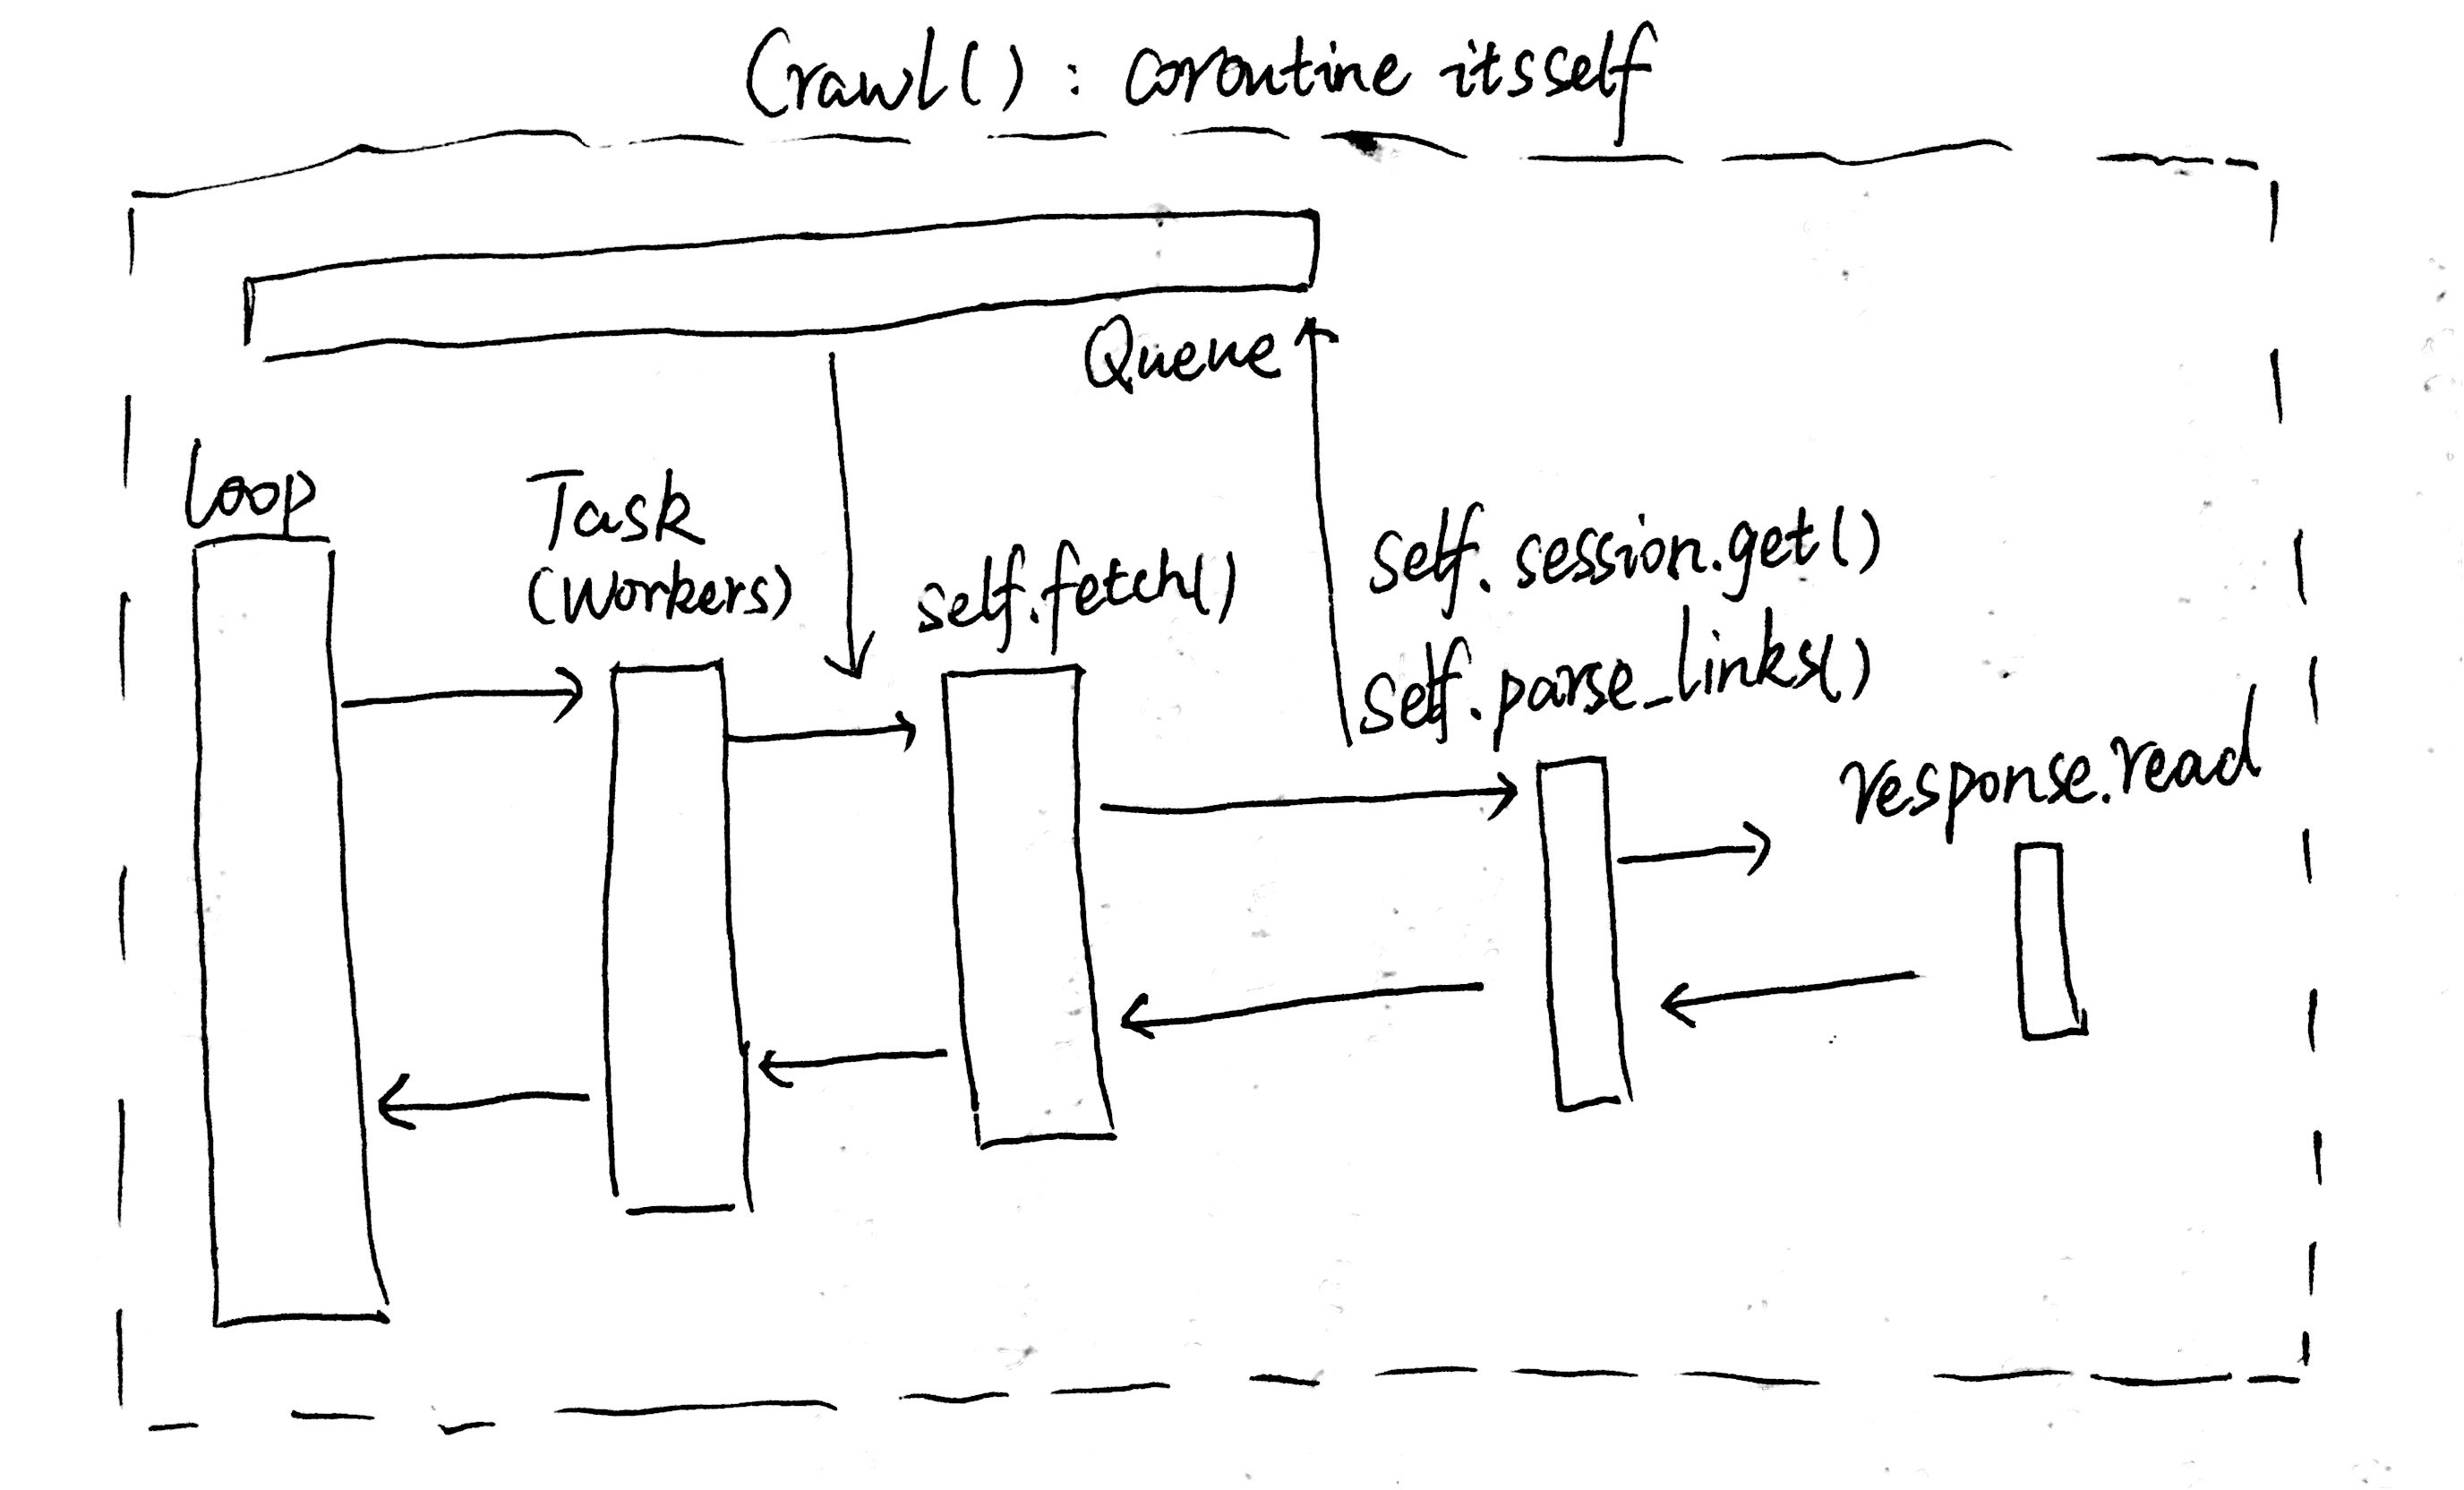 Crawl() : coroutine itsself
Queue
Loop
Task
(Workers)
self.fetch()
self.session.get()
self.parse_links()
response.read